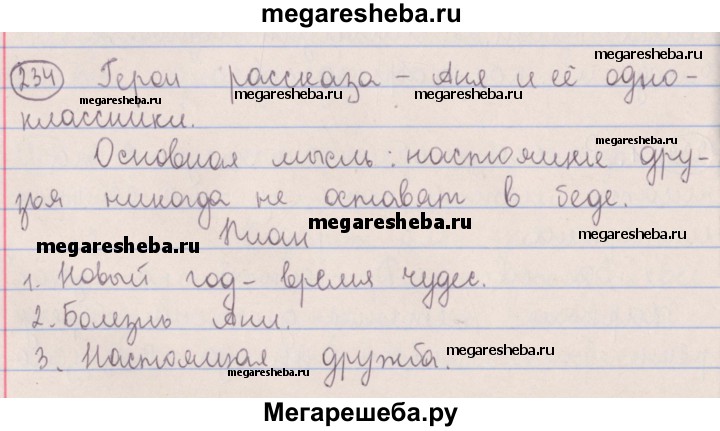 megaresheba.ru
megaresheba.ru
234 Герои рассказа - Аня и её одно-
megaresheba.ru megaresheba.ru megaresheba.ru
классники.
megaresheba.ru
Основная мысль: настоящие дру-
зья никогда не оставят в беде.
megaresheba.ru
План
megaresheba.ru
1. Новый год - время чудес.
2. Болезнь Ани.
megaresheba.ru
3. Настоящая дружба.
megaresheba.ru
Мегарешеба.ру